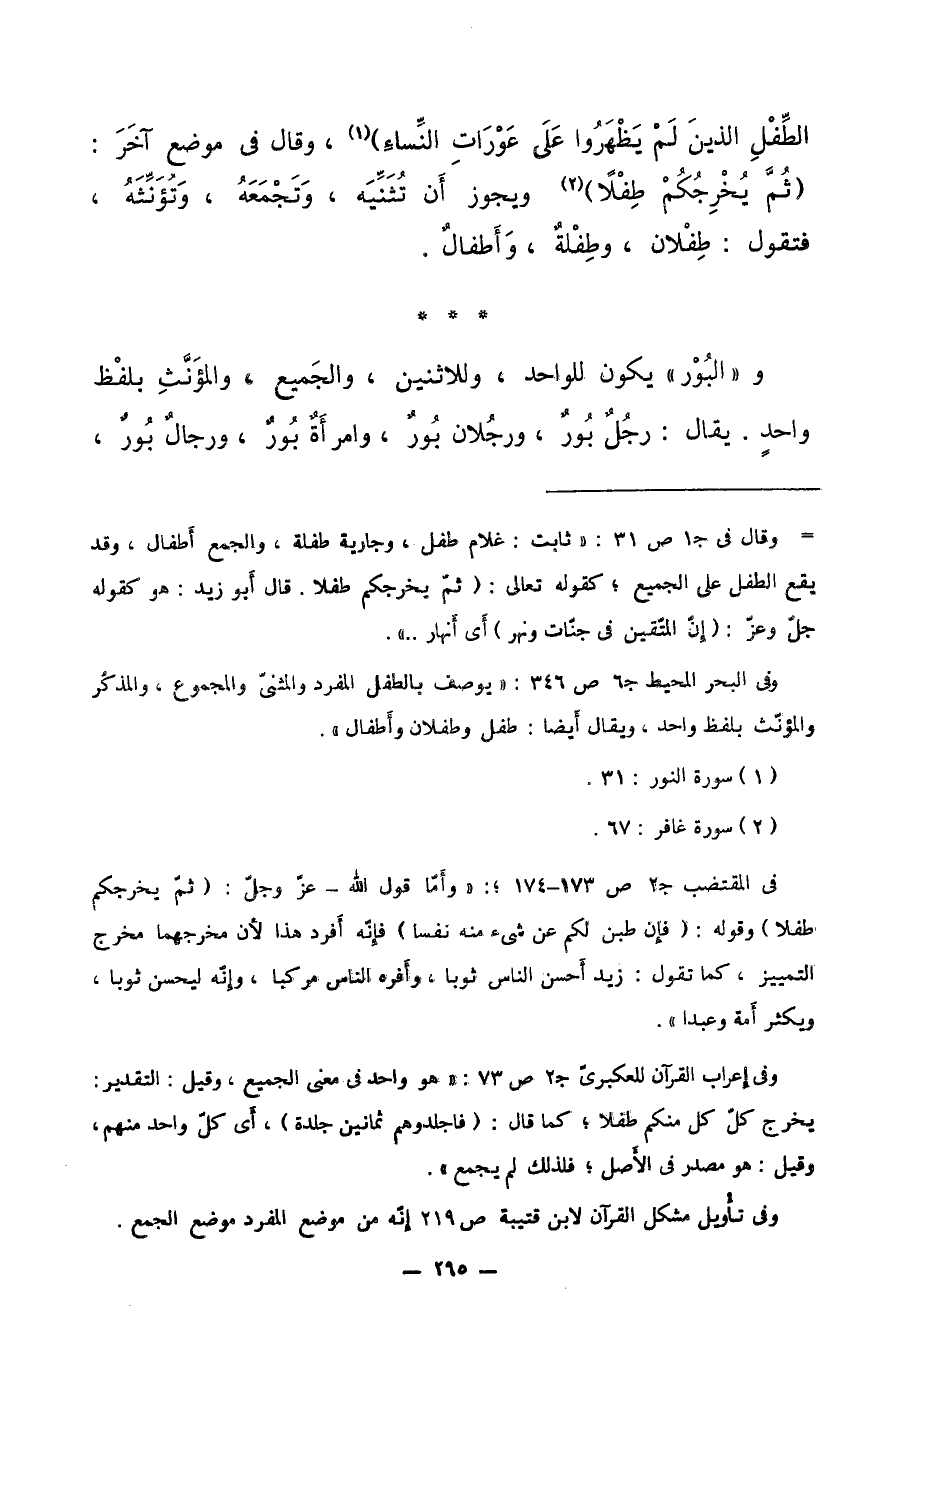 الطِّفْلِ الذينَ لَمْ يَظْهَرُوا عَلَى عَوْرَاتِ النِّساءِ)(١) ، وقال فى موضع آخَرَ :
(ثُمَّ يُخْرِجُكُمْ طِفْلًا)(٢) ويجوز أَن تُثَنِّيَه ، وَتَجْمَعَهُ ، وَتُؤَنِّثَهُ ،
فتقول : طِفْلان ، وطِفْلةٌ ، وَأَطفالٌ .
* * *
و «البُوْر» يكون للواحد ، وللاثنين ، والجَميع ، والمؤَنَّثِ بلفْظ
واحدٍ . يقال : رجُلٌ بُورٌ ، ورجُلان بُورٌ ، وامرأَةٌ بُورٌ ، ورجالٌ بُورٌ ،
= وقال فى جـ١ ص ٣١ : « ثابت : غلام طفل ، وجارية طفلة ، والجمع أَطفال ، وقد
يقع الطفل على الجميع ؛ كقوله تعالى : ( ثمّ يخرجكم طفلا . قال أَبو زيد : هو كقوله
جلّ وعزّ : ( إِنّ المتّقين فى جنّات ونهر ) أَى أَنهار ..» .
وفى البحر المحيط جـ٦ ص ٣٤٦ : « يوصف بالطفل المفرد والمثنىّ والمجموع ، والمذكّر
والمؤنّث بلفظ واحد ، ويقال أَيضا : طفل وطفلان وأَطفال » .
( ١ ) سورة النور : ٣١ .
( ٢ ) سورة غافر : ٦٧ .
فى المقتضب جـ٢ ص ١٧٣–١٧٤ ؛: « وأَمّا قول الله – عزّ وجلّ : ( ثمّ يخرجكم
طفلا ) وقوله : ( فإِن طبن لكم عن شىء منه نفسا ) فإِنّه أَفرد هذا لأَن مخرجهما مخرج
التمييز ، كما تقول : زيد أَحسن الناس ثوبا ، وأَفره الناس مركبا ، وإِنّه ليحسن ثوبا ،
ويكثر أَمة وعبدا » .
وفى إعراب القرآن للعكبرىّ جـ٢ ص ٧٣ : « هو واحد فى معنى الجميع ، وقيل : التقدير :
يخرج كلّ كل منكم طفلا ؛ كما قال : ( فاجلدوهم ثمانين جلدة ) ، أَى كلّ واحد منهم ،
وقيل : هو مصدر فى الأَصل ؛ فلذلك لم يجمع » .
وفى تأْويل مشكل القرآن لابن قتيبة ص ٢١٩ إِنّه من موضع المفرد موضع الجمع .
– ٢٩٥ –